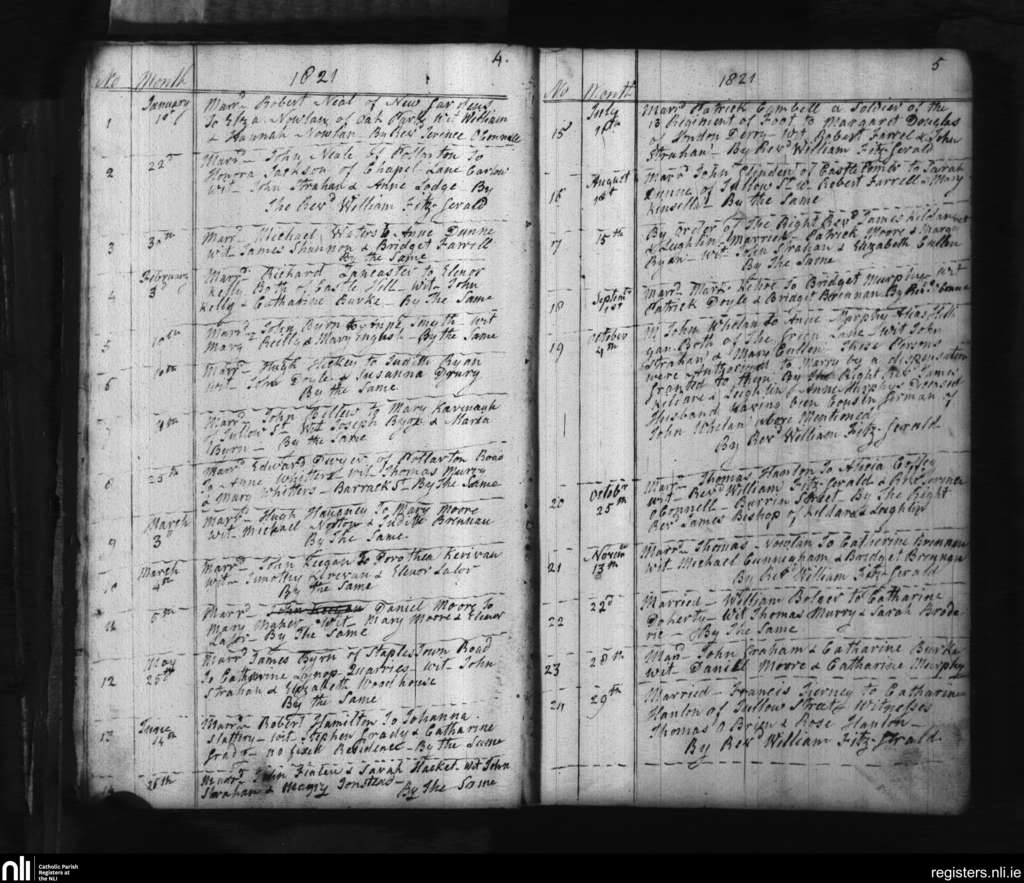 4.
No Month 1821
January 1st
1
Marrd Robert Neal of New Gardens
To Eliza Nowlan of Oak Park Wit William
& Hannah Nowlan By Revd Terence OConnell
22d
2
Marrd John Neale of Pollarton To
Honora Jackson of Chapel Lane Carlow
Wit John Strahan & Anne Lodge By
The Revd William Fitz-Gerald
30th
3
Marrd Michael Waters to Anne Dunne
Wit James Shannon & Bridget Farrell
By the Same
February 3d
4
Marrd Richard Lancaster to Elenor
Kelly Both of Castle Hill - Wit John
Kelly & Catharine Burke - By The Same
10th
5
Marrd - John Byrn to Anne Smyth - wit
Mary Reelly & Mary English - By the Same
10th
6
Marrd Hugh Hickey to Judith Ryan
Wit John Doyle & Susanna Drury
By the Same
7
Marrd John Bellew to Mary Kavanagh
Tullow St Wit Joseph Byrn & Maria
Byrn - By the Same
25th
8
Marrd Edward Dwyer of Pollarton Road
To Anne Whitters Wit Thomas Murry
& Mary Whitters - Barrack St By The Same
March 3d
9
Marrd Hugh Haugney To Mary Moore
Wit Michael Norton & Judith Brennan
By The Same.
March 4th
Marrd John Keegan To Dorothea Kerivan
Wit Timothy Kerevan & Elenor Lalor
By the Same
Marrd John Keegan Daniel Moore To
Mary Maher Wit Mary Moore & Elenor
Lalor - By The Same
May 25th
12
Marrd James Byrn of Staplestown Road
To Catharine Lynop Quarries - Wit John
Strahan & Elizabeth Woodhouse
By the Same
June 14th
13
Marrd Robert Hamilton To Johanna
Slattery - wit Stephen Grady & Catharine
Grady - no fixed Residence - By the Same
28th
14
Marrd John & Sarah Hacket Wit John
Strahan & By the Same
5
No Month 1821
July
15
Marrd Patrick Cambell a Soldier of the
13 Regiment of Foot To Margaret Douglas
of London Derry - Wit Robert Farrel & John
Strahan. By Revd William Fitz-Gerald
August 1st
16
Marrd John Glinden of Castlecomber to Sarah
Dunne of Tullow St W. Robert Farrell & Mary
Kinsella By the Same
15th
17
By order of The Right Revd James Kildare
& Leighlin Married Patrick Moore &
Ryan - Wit John Strahan & Elizabeth Cullen
By The Same
Septemr 1st
18
Marrd Mark Kehoe To Bridget wit
Patrick Doyle & Bridget Brennan By the Same
October 4th
19
M. John Whelan to Anne Murphy
Both of The Green Lane Wit John
Strahan & Mary Cullen - These Persons
were Authorized to Marry by a dispensation
Granted to them By the Right Revd James
Kildare & Leighlin, Anne Murphys Deceased
Husband having been Cousin German of
John Whelan above Mentioned
By Revd William Fitz-Gerald
Octobr 25th
20
Marrd - Thomas Hanlon To Alicia Coffey
Wit - Revd William Fitz Gerald & Revd Terence
OConnell - Burrin Street - By The Right
Revd James Bishop of Kildare & Leighlin
Novemr 13th
21
Marrd - Thomas Nowlan To Catherine Brennan
Wit Michael Cunningham & Bridget Brennan
By Revd William Fitz-Gerald
22d
22
Married - William Bolger to Catharine
Doherty - Wit Thomas Murry & Sarah Brode-
rie - By The Same
28th
23
Marrd John Graham & Catharine Burke
Wit - Daniel Moore & Catharine Murphy
29th
24
Married - Francis Tierney to Catharine
Hanlon of Tullow Street Witnesses
Thomas O Brien & Rose Hanlon -
By Revd William Fitz-Gerald
nli Catholic Parish
Registers at
the NLI
registers.nli.ie